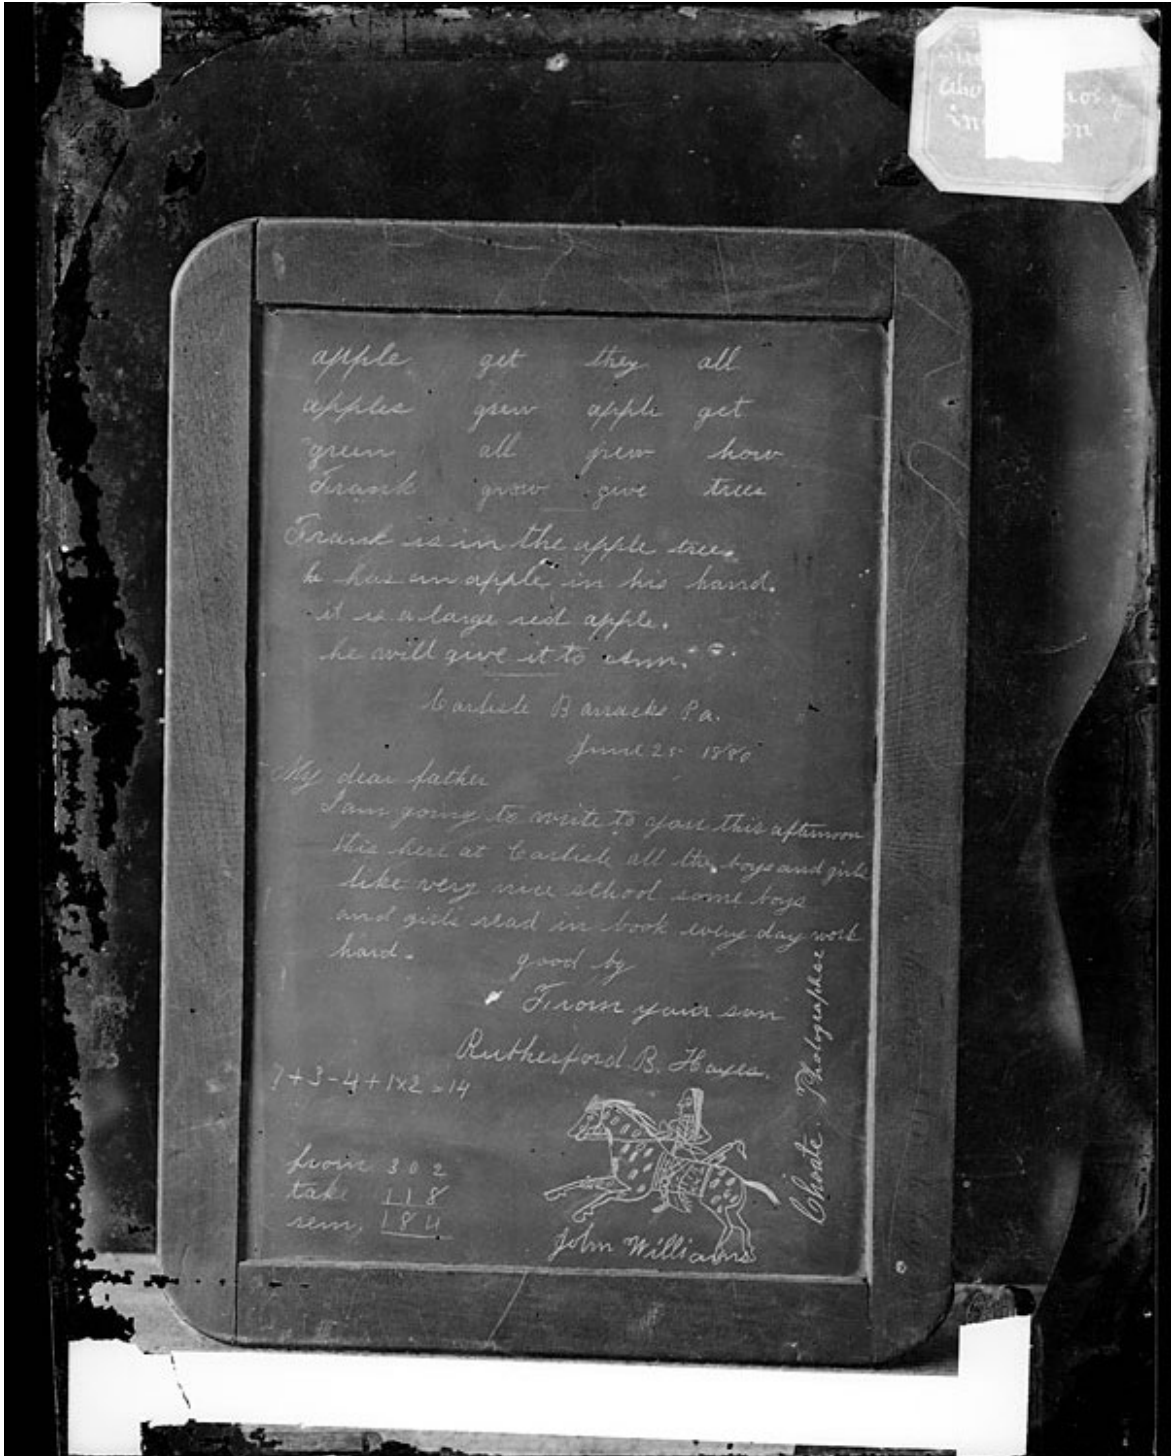 apple get they all
apples grew apple get
green all grew how
Frank grow give trees
Frank is in the apple tree.
he has an apple in his hand.
it is a large red apple.
he will give it to Ann.
Carlisle Barracks Pa.
June 25 1880
My dear father
I am going to write to you this afternoon
this here at Carlisle all the boys and girls
like very nice school some boys
and girls read in book every day work
hard. good by
From your son
Rutherford B. Hayes.
7+3-4+1x2=14
from 302
take 118
rem. 184
John Williams
Choate. Photographer